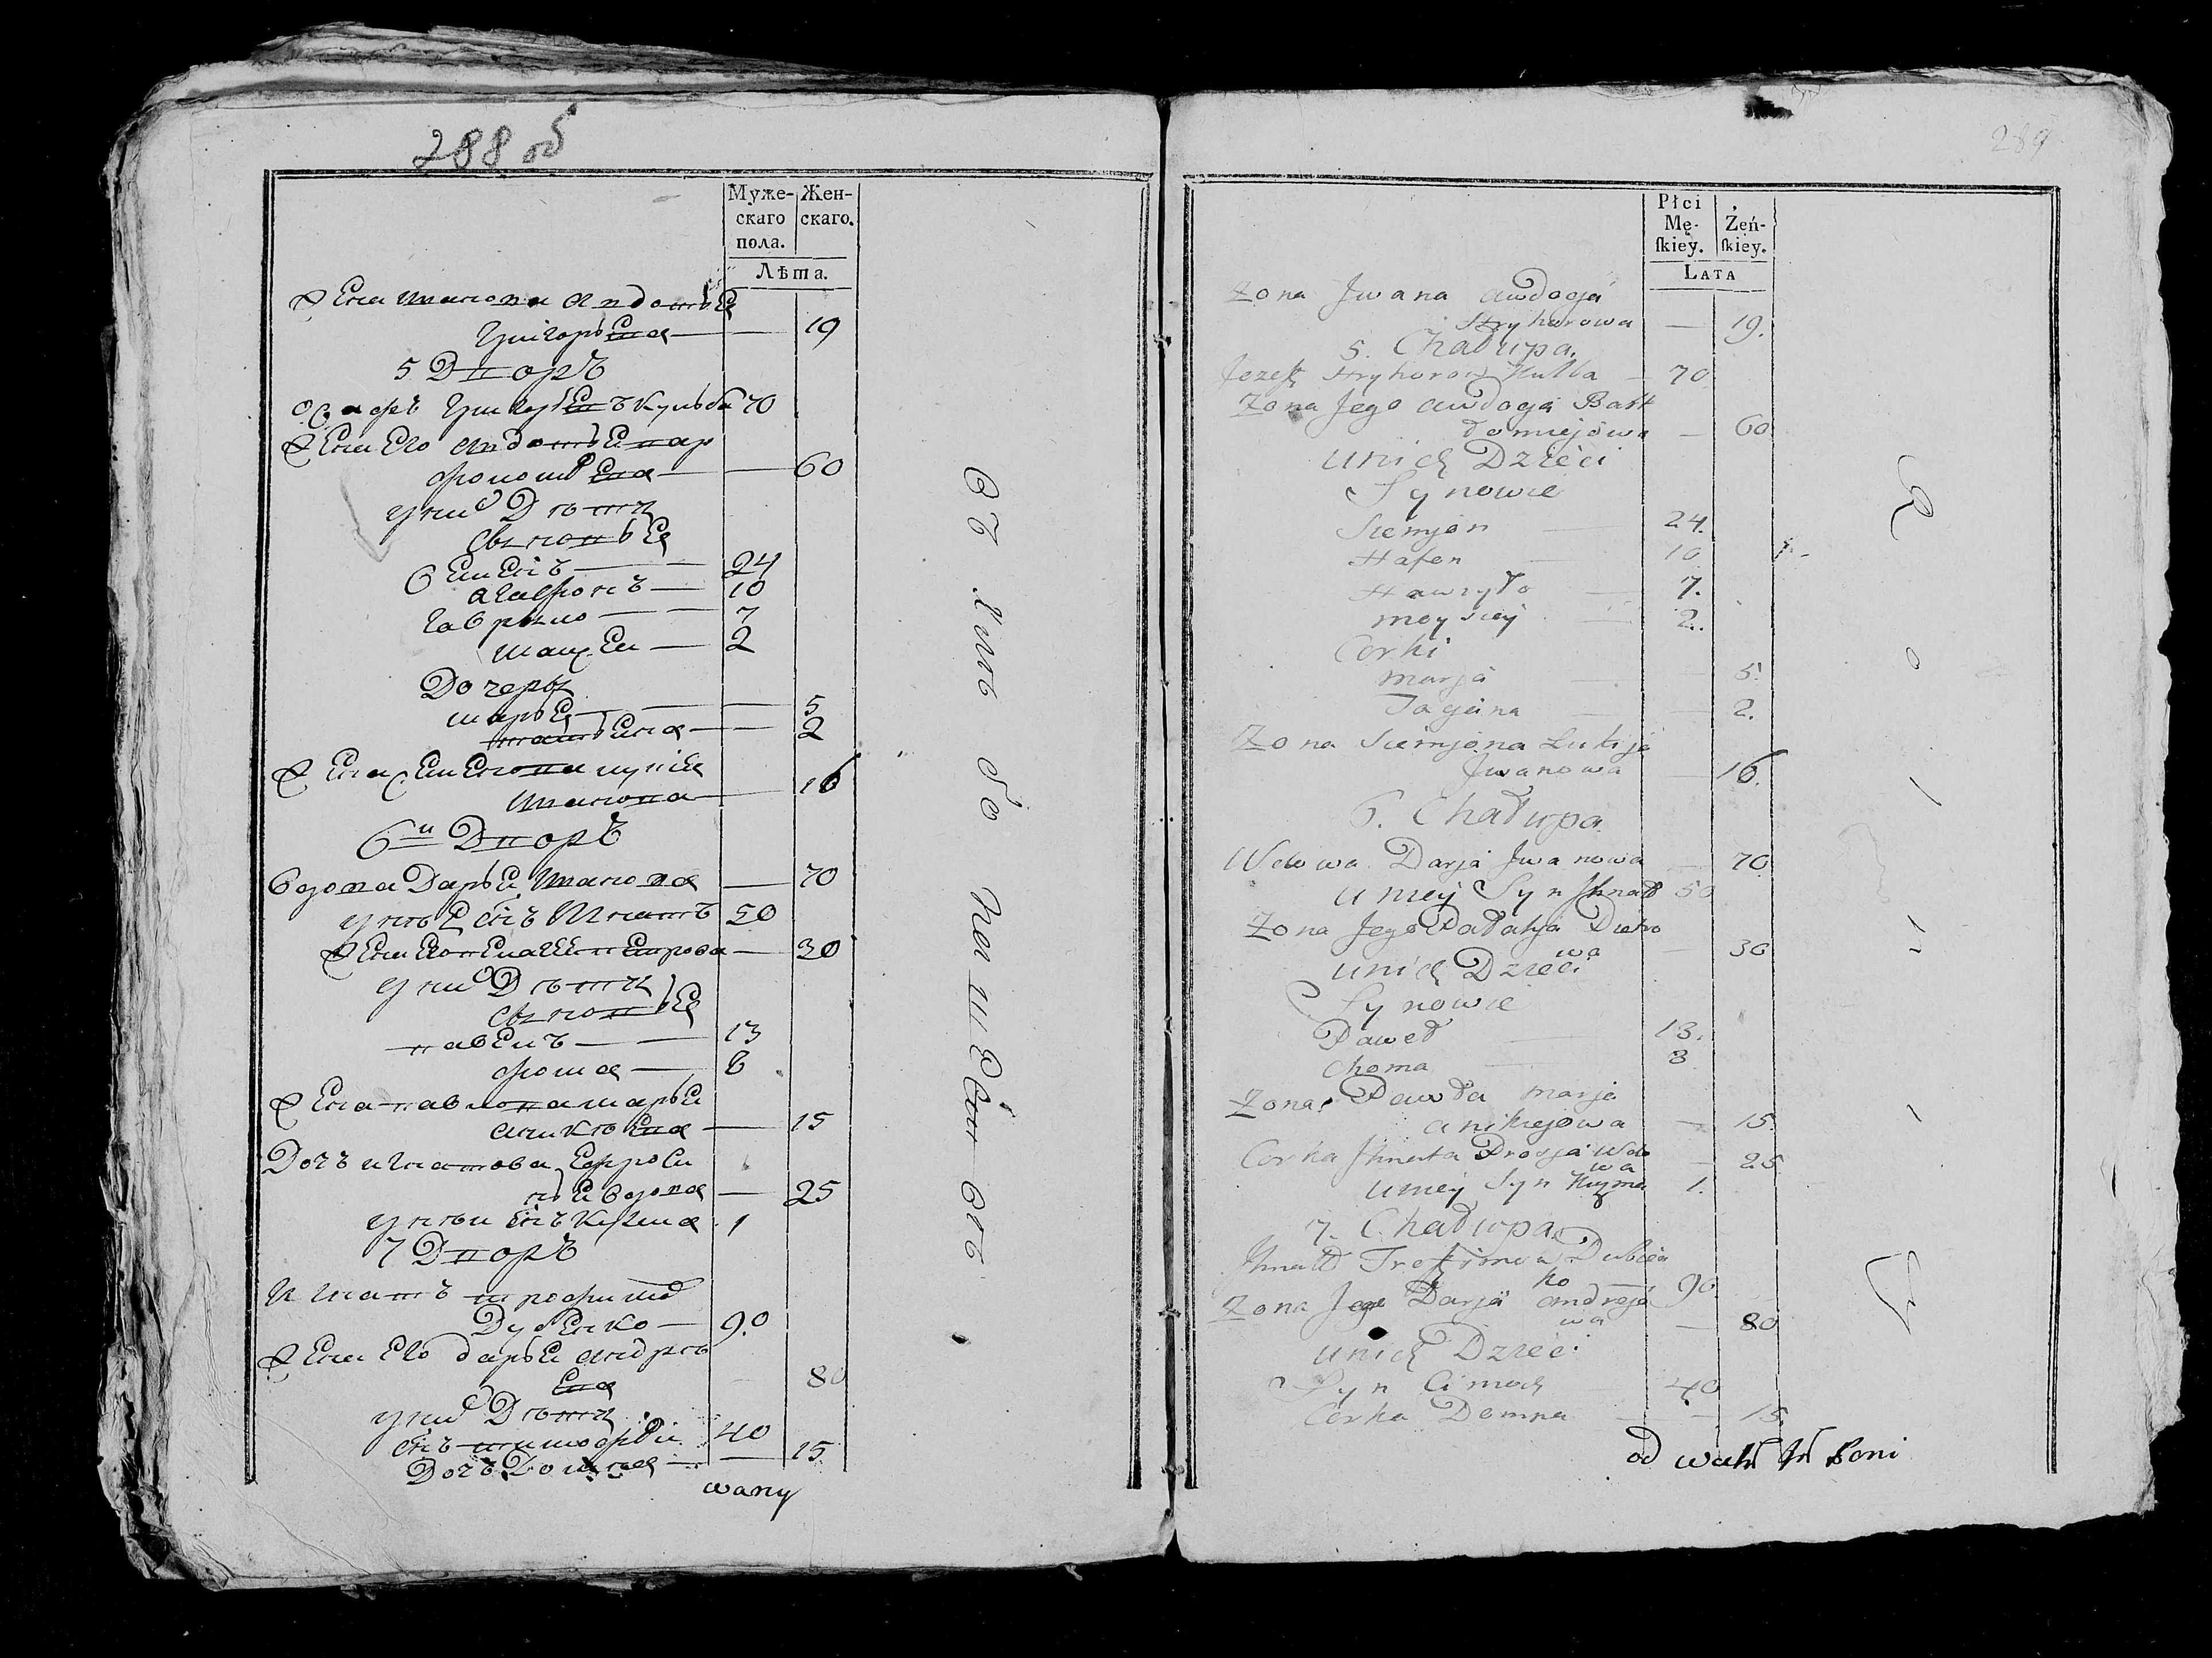 288 об
Муже-
скаго
пола.
Жен-
скаго.
Лѣта.
Жена Ивана Авдотья
Григорьева — 19
5 Дворъ
Осафъ Григорьевъ Кульба 70
Жена Его Авдотья Вар
фоломѣева — 60
у них Дѣти
Сыновья
Семенъ — 24
Агафонъ — 10
Гаврыло — 7
Моисей — 2
Дочеры
Марья — 5
Татьяна — 2
Жена Семенова Лукія
Иванова — 16
6й Дворъ
Вдова Дарья Иванова — 70
у неѣ Снъ Игнатъ 50
Жена Его Пелагея Петрова — 30
у них Дѣти
Сыновья
Павелъ — 13
Фома — 8
Жена Павлова Марья
Аникѣева — 15
Дочь Игнатова Ефроси
нья вдова — 25
у нѣи Снъ Кузма 1
7 Дворъ
Игнатъ Трофимов
Дубенко — 90
Жена Его Дарья Андрѣ
ева 80
у них Дѣти
Снъ Тимофѣй 40
Дочъ Домна — 15
wany
289
Płci
Mę-
skiéy.
Żeń-
skiey.
Lata
Żona Jwana Awdogja
Hryhorowa — 19.
5. Chałupa.
Jozef Hryhorow Kulba — 70
Żona Jego Awdogja Bart
łomiejowa — 60
U nich Dzieci
Synowie
Siemjon 24.
Hafon 10
Hawryło 7.
Moysiey 2.
Corki
Marja 5.
Tacjana 2.
Żona Siemjona Lukija
Jwanowa 16.
6. Chałupa
Wdowa Darja Jwanowa — 70
U niey Syn Jhnat 50
Żona Jego Pałahja Pietro
wa 30
U nich Dzieci
Synowie
Paweł 13.
Choma 8
Żona Pawła Marja
Anikiejowa — 15.
Corka Jhnata Prosja Wdo
wa — 25.
U niey Syn Kuzma 1.
7. Chałupa.
Jhnat Trofimow Dubien
ko — 90
Żona Jego Darja Andreje
wa — 80
U nich Dzieci
Syn Cimoch 40
Corka Domna — 15